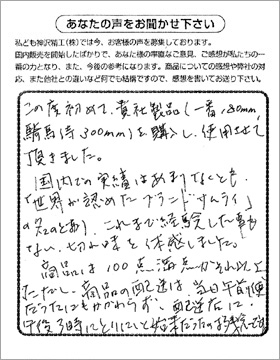 あなたの声をお聞かせ下さい
私ども神沢精工(株)では今、お客様の声を募集しております。
国内販売を開始したばかりで、お客様の率直なご意見、ご感想が私たちの一
番の力となり、また、今後の参考になります。商品についての感想や弊社の対
応、また他社との違いなど何でも結構ですので、感想を書いてお送り下さい。
この度初めて、貴社製品(一番180mm、
騎馬侍300mm)を購入し、使用させて
頂きました。
国内での実績はあまりなくとも、
「世界が認めたブランドサムライ」
の名のとおり、これまで経験した事も
ない、切れ味を体感しました。
商品は100点満点かそれ以上
ただし、商品の配達は、当日午前便
だったにもかかわらず、配達店に
午後3時にとりにいく始末だったのが残念です